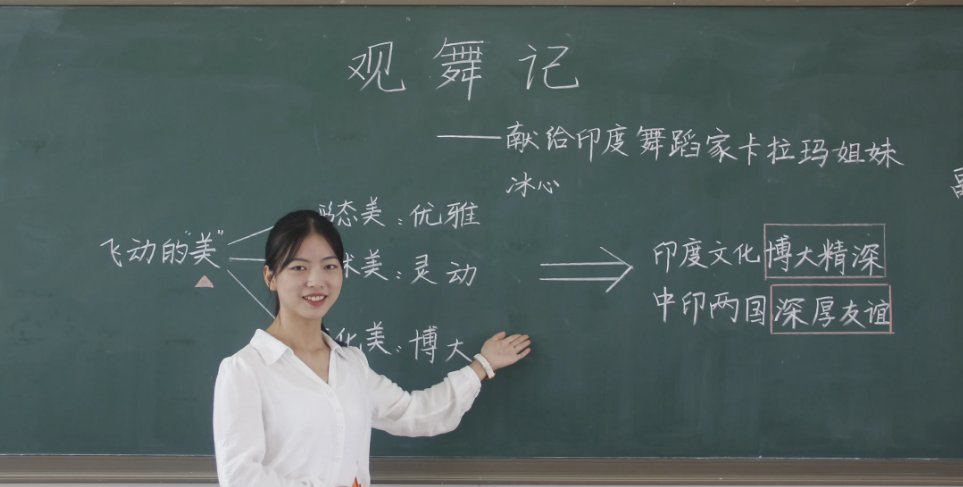 观舞记
——献给印度舞蹈家卡拉玛姐妹
冰心
飞动的"美"
态美：优雅
美：灵动
化美：博大
印度文化博大精深
中印两国深厚友谊